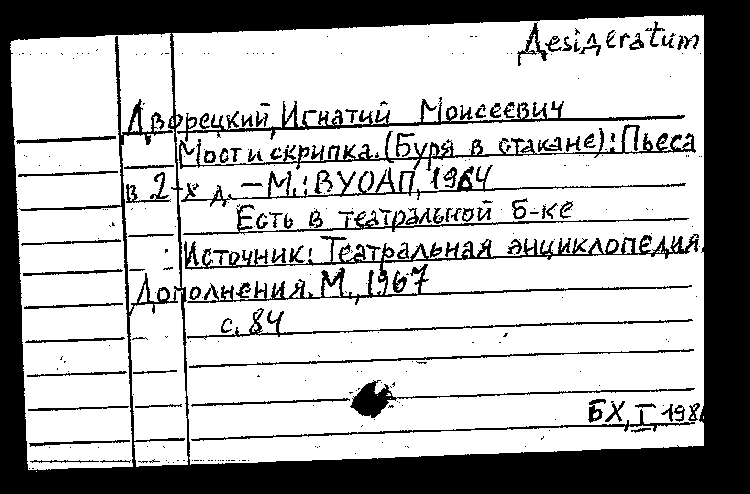 Desideratum
Дворецкий, Игнатий Моисеевич
Мост и скрипка. (Буря в стакане): Пьеса
в 2-х д. — М.: ВУОАП, 1964
Есть в театральной б-ке
Источник: Театральная энциклопедия.
Дополнения. М., 1967
с. 84
БХ, I, 198